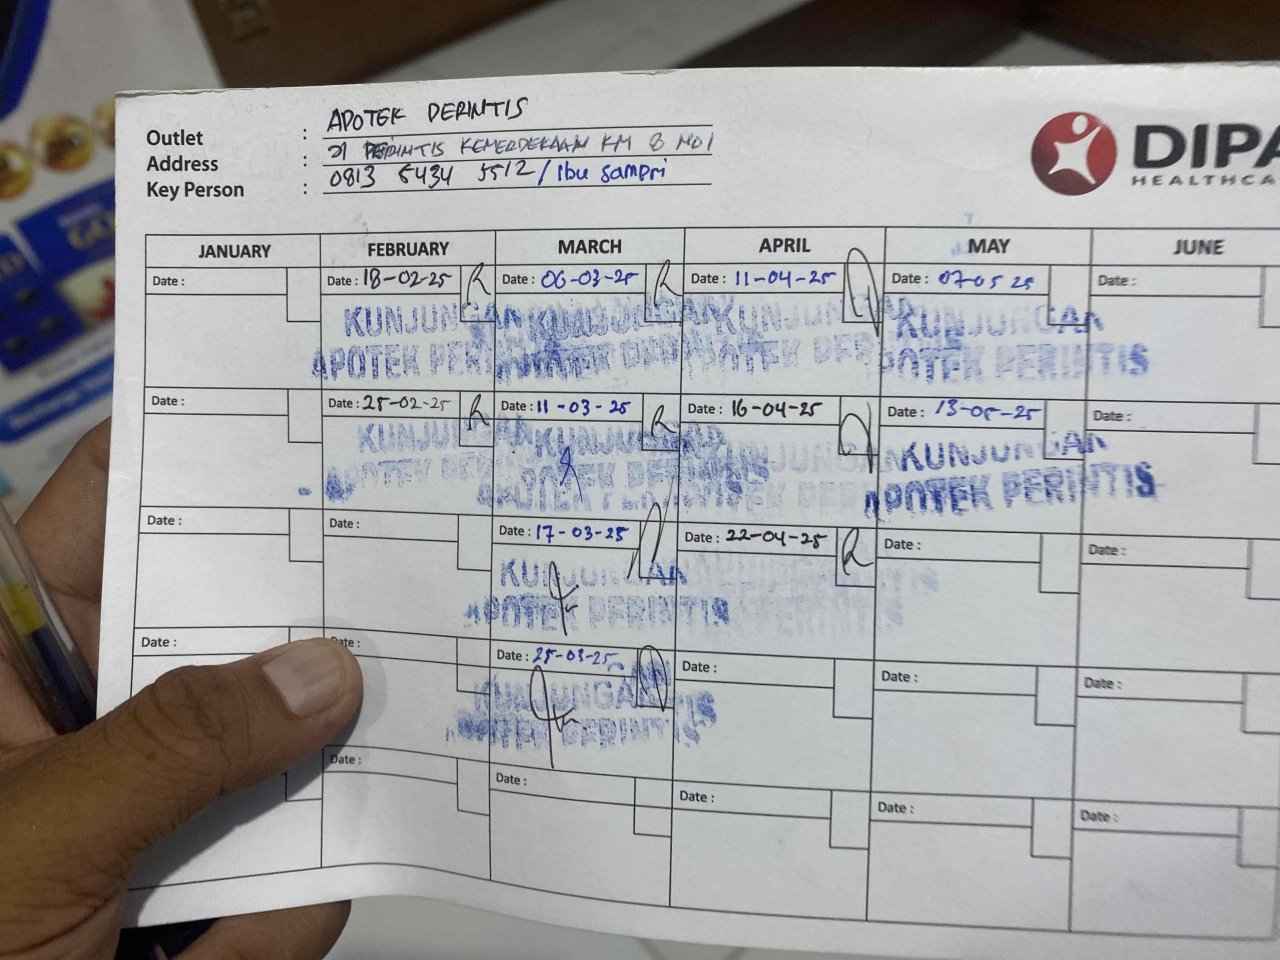 Outlet : APOTEK PERINTIS
Address : Jl PERINTIS KEMERDEKAAN KM 8 NO 1
Key Person : 0813 5434 5512 / Ibu Sampri
DIPA
HEALTHCA
JANUARY FEBRUARY MARCH APRIL MAY JUNE
Date : Date : 18-02-25 Date : 06-03-25 Date : 11-04-25 Date : 07-05 25 Date :
KUNJUNGAN KUNJUNGAN KUNJUNGAN KUNJUNGAN
APOTEK PERINTIS APOTEK PERINTIS APOTEK PERINTIS APOTEK PERINTIS
Date : Date : 25-02-25 Date : 11-03-25 Date : 16-04-25 Date : 13-05-25 Date :
KUNJUNGAN KUNJUNGAN KUNJUNGAN KUNJUNGAN
APOTEK PERINTIS APOTEK PERINTIS APOTEK PERINTIS APOTEK PERINTIS
Date : Date : Date : 17-03-25 Date : 22-04-25 Date : Date :
KUNJUNGAN
APOTEK PERINTIS
Date : Date : Date : 25-03-25 Date : Date : Date :
KUNJUNGAN
APOTEK PERINTIS
Date : Date : Date : Date : Date :